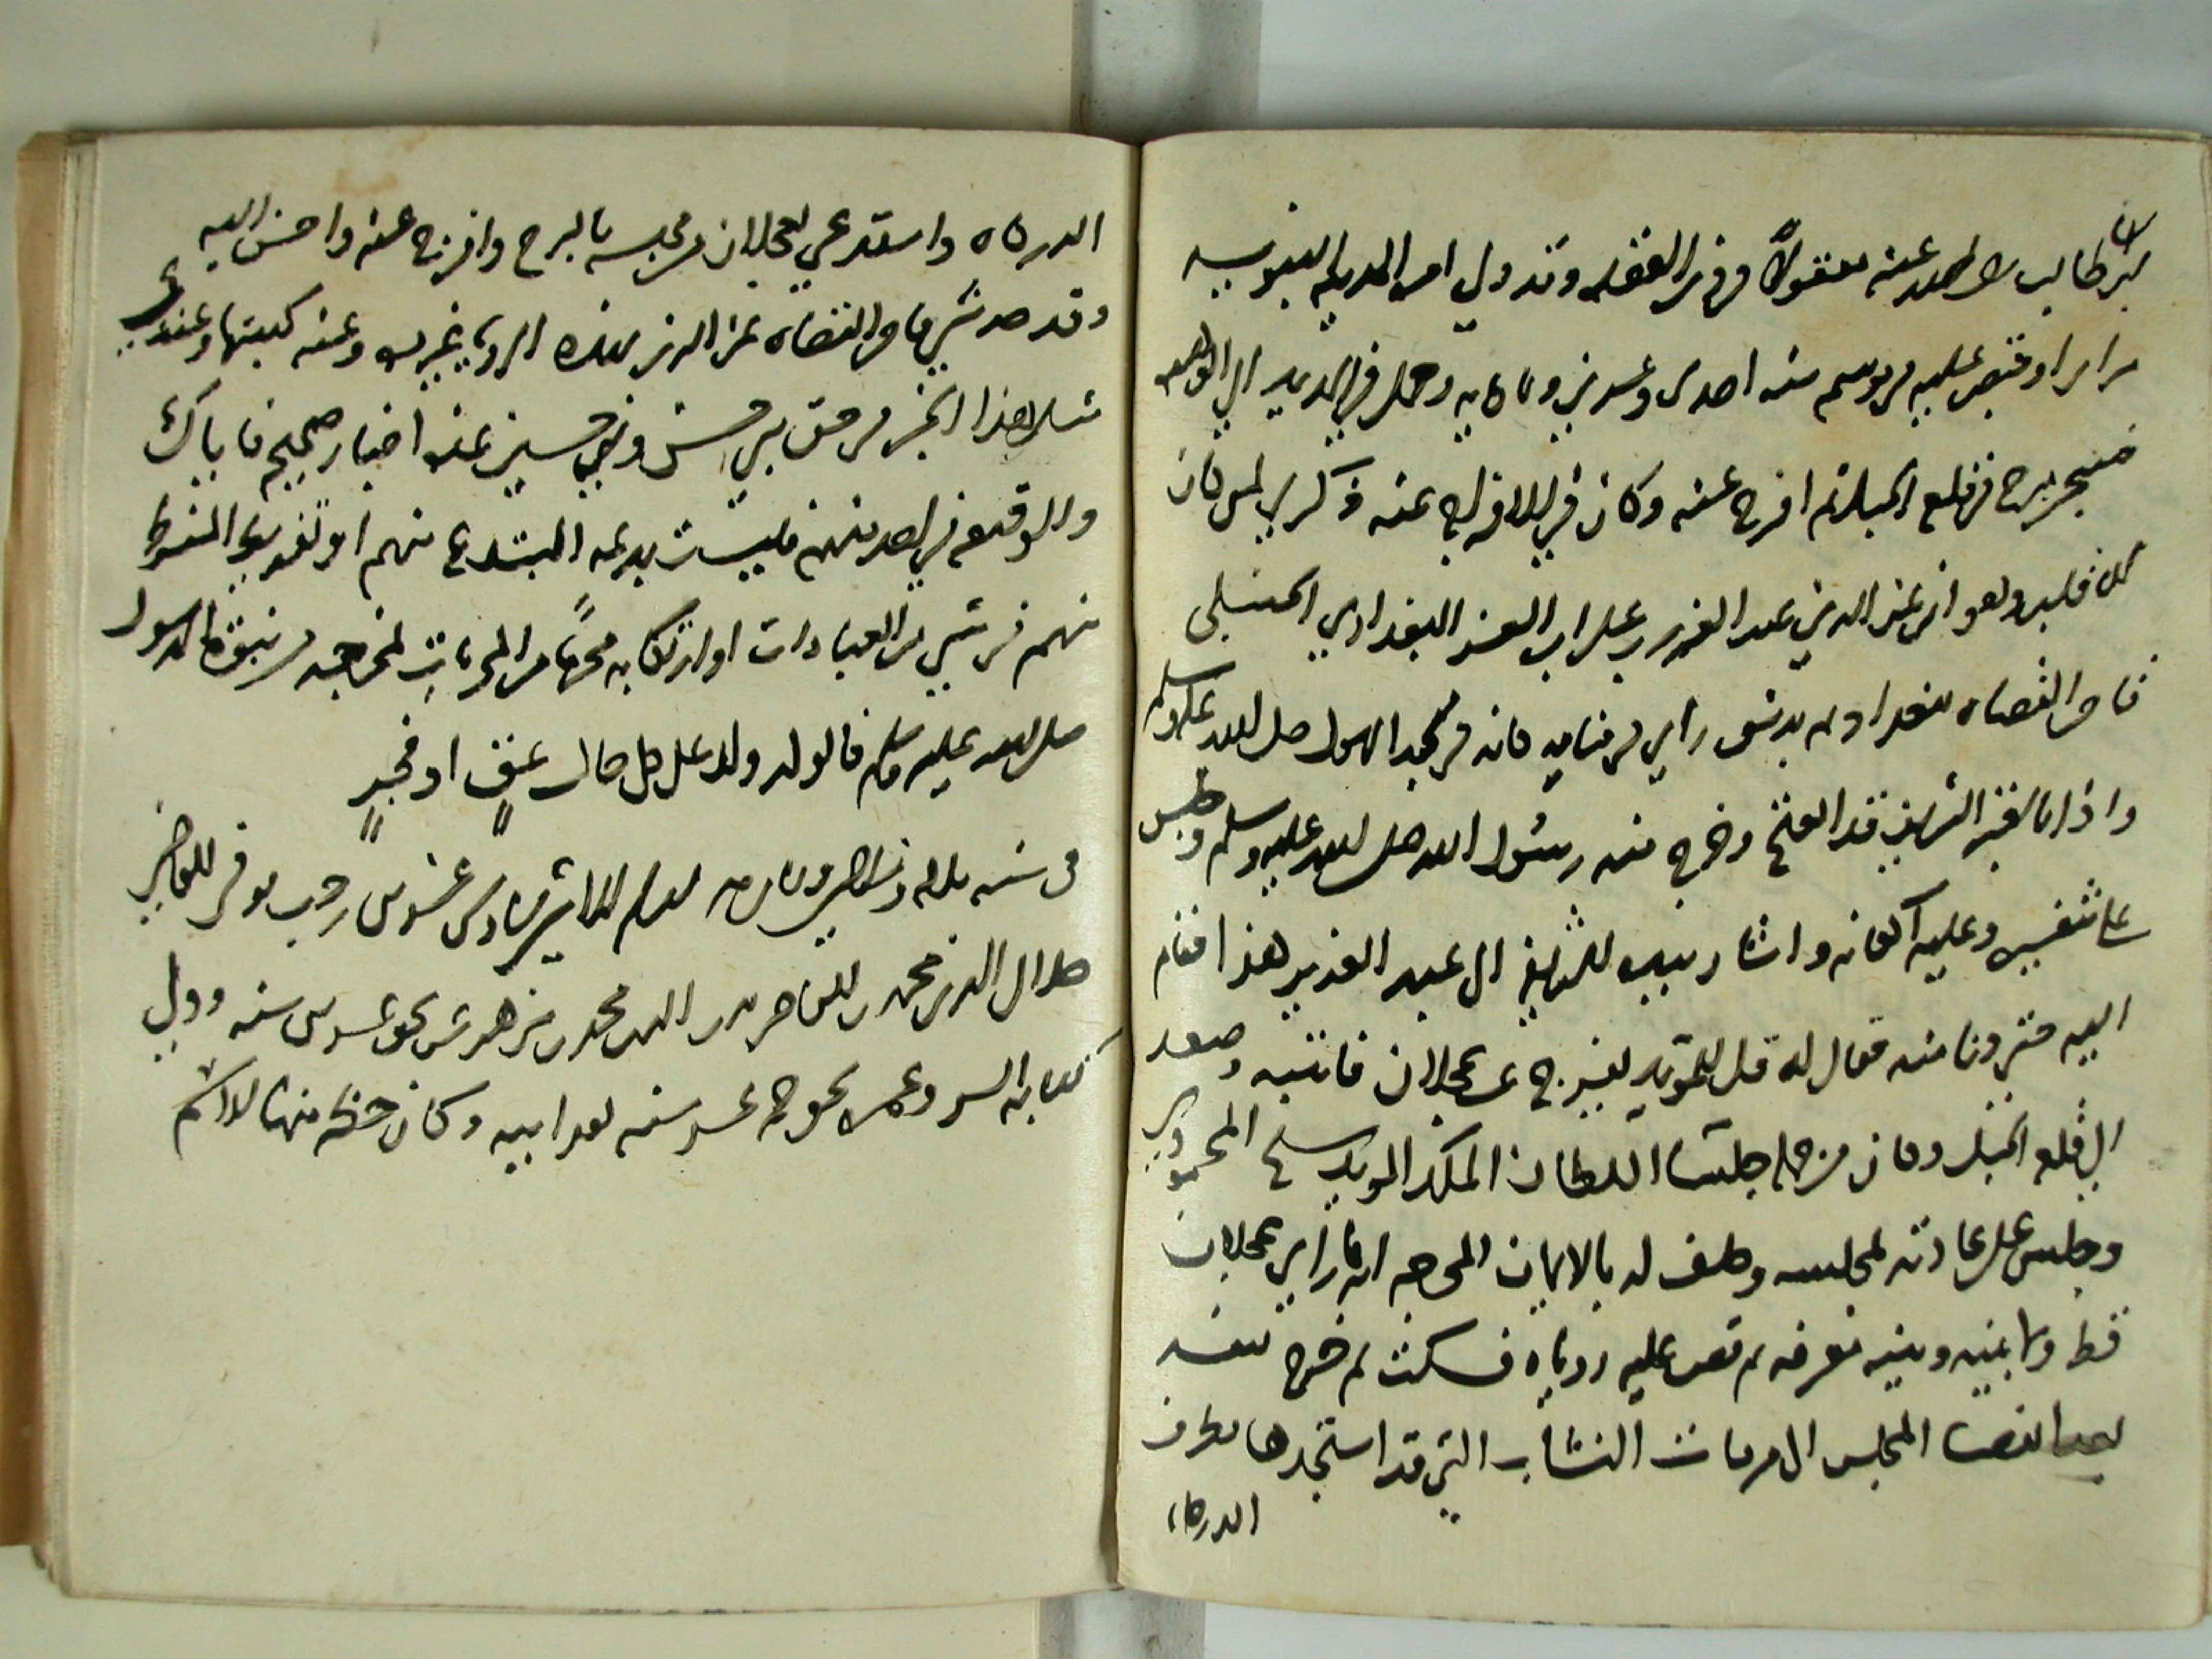 ابي طالب رضي الله عنه مقتولاً في ذي القعده وقد ولي امر المدينه النبويه
مرارا وقبض عليه في موسم سنه احدى وعشرين وثمانمايه وحمل في الحديد الى القاهره
فسجن ببرج في قلعه الجبل ثم افرج عنه وكان في الافراج عنه ذكرى لمن كان
له قلب وهو ان عز الدين عبد العزيز بن علي ابن العز البغدادي الحنبلي
قاضي القضاه ببغداد ثم بدمشق راى في منامه كانه في مسجد الرسول صلى الله عليه وسلم
واذا بالقبر الشريف قد انفتح وخرج منه رسول الله صلى الله عليه وسلم وجلس
على شفيره وعليه اكفانه واشار بيده الشريفه الى عبد العزيز هذا فقام
اليه حتى دنا منه فقال له قل للمؤيد يفرج عن عجلان فانتبه وصعد
الى قلعه الجبل وكان من جمله جلساء السلطان الملك المويد شيخ المحمودي
وجلس على عادته بمجلسه وحلف له بالايمان المحرجه انه ما راى عجلان
قط ولا بينه وبينه معرفه ثم قص عليه روياه فسكت ثم خرج بنفسه
بعد انقضاء المجلس الى مرماه النشاب التي قد استجدها بطرف
الدركاه
الدركاه واستدعى بعجلان من محبسه بالبرج وافرج عنه واحسن اليه
وقد حدثني قاضي القضاه عز الدين بهذه الرويا غير مره وعنه كتبتها وعندي
مثل هذا الخبر في حق بني حسن وبني حسين عده اخبار صحيحه فاياك
والوقيعه في احد منهم فليست بدعه المبتدع منهم او تفريط المفرط
منهم في شي من العبادات او ارتكابه محرما من المحرمات بمخرجه من بنوة الرسول
صلى الله عليه وسلم فالولد ولد على كل حال عق او فجر
في سنه ثلاث وثلاثين وثمانمايه سادس عشرين رجب توفي القاضي
جلال الدين محمد بن القاضي بدر الدين محمد بن مزهر عن نحو عشرين سنه وولي
كتابه السر وعمره نحو خمس عشر سنه بعد ابيه وكان حظه منها الاسم